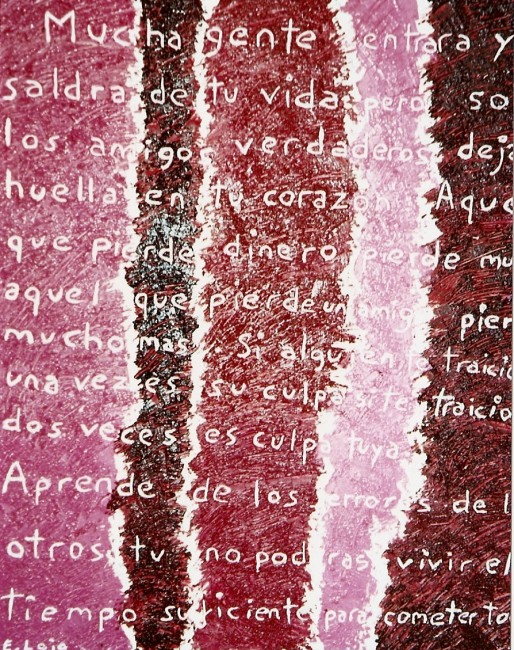 Mucha gente entrara y
saldra de tu vida pero so
los amigos verdaderos deja
huella en tu corazon. Aque
que pierde dinero pierde mu
aquel que pierde un amigo pier
mucho mas. Si alguien te traicio
una vez es su culpa si te traicio
dos veces es culpa tuya.
Aprende de los errores de l
otros tu no podras vivir el
tiempo suficiente para cometer to